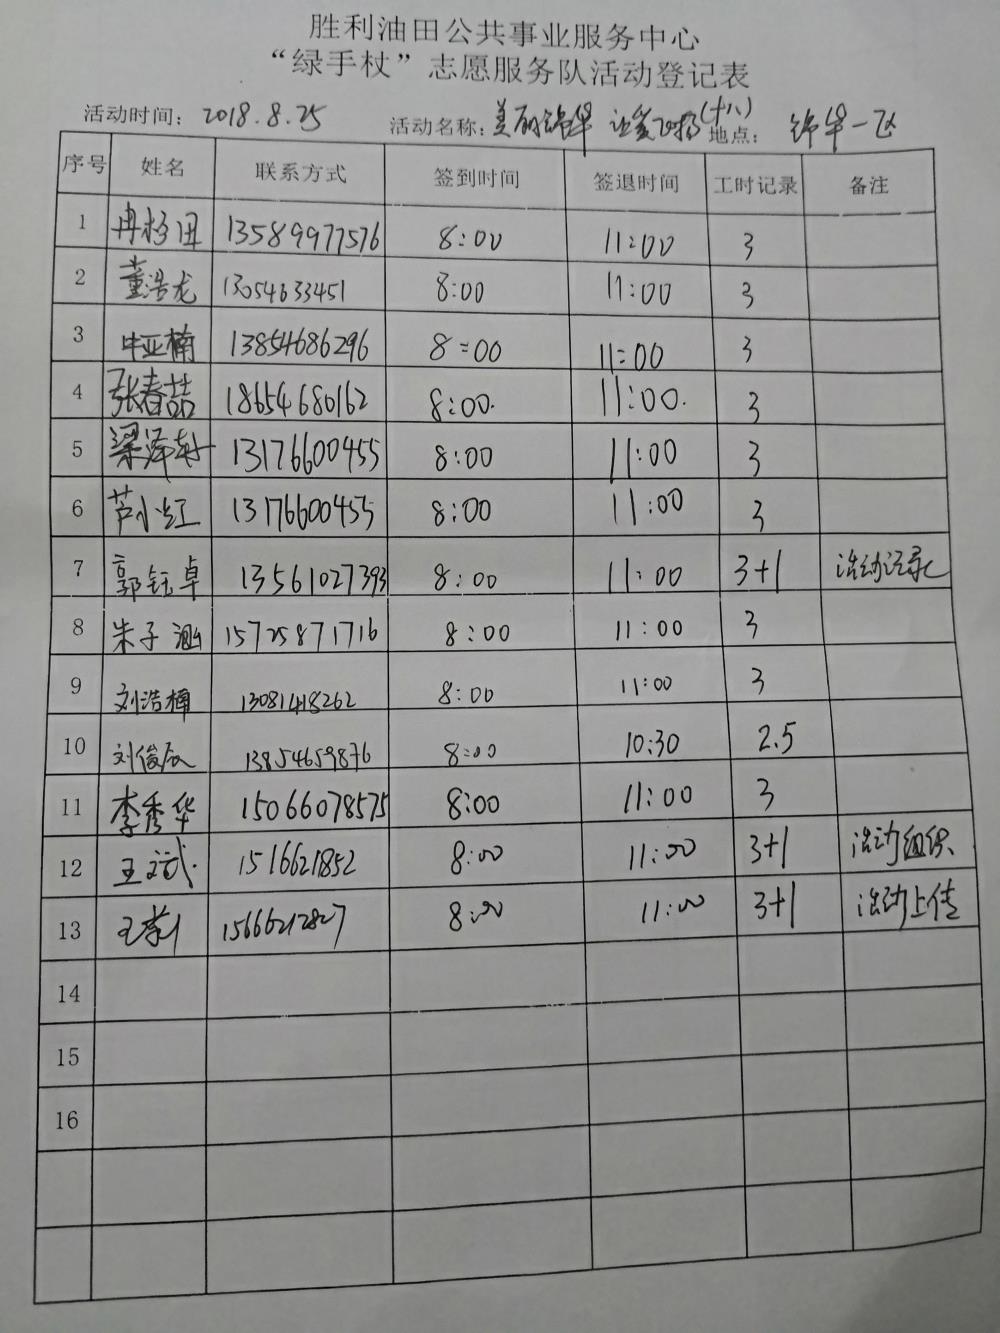 胜利油田公共事业服务中心
“绿手杖”志愿服务队活动登记表
活动时间: 2018.8.25 活动名称: 美丽锦华 让爱飞扬(十八) 地点: 锦华一区
序号 姓名 联系方式 签到时间 签退时间 工时记录 备注
1 冉杨田 13589977576 8:00 11:00 3
2 董浩龙 13054633451 8:00 11:00 3
3 亚楠 13854686296 8:00 11:00 3
4 张春喆 18654680162 8:00. 11:00. 3
5 梁泽轩 13176600455 8:00 11:00 3
6 芦小红 13176600455 8:00 11:00 3
7 郭钰卓 13561027393 8:00 11:00 3+1 活动记录
8 朱子涵 15725871716 8:00 11:00 3
9 刘浩楠 13081418262 8:00 11:00 3
10 刘俊辰 13854659876 8:00 10:30 2.5
11 李秀华 15066078575 8:00 11:00 3
12 王文武 1516621852 8:00 11:00 3+1 活动组织
13 王莉 15666212827 8:00 11:00 3+1 活动上传
14
15
16